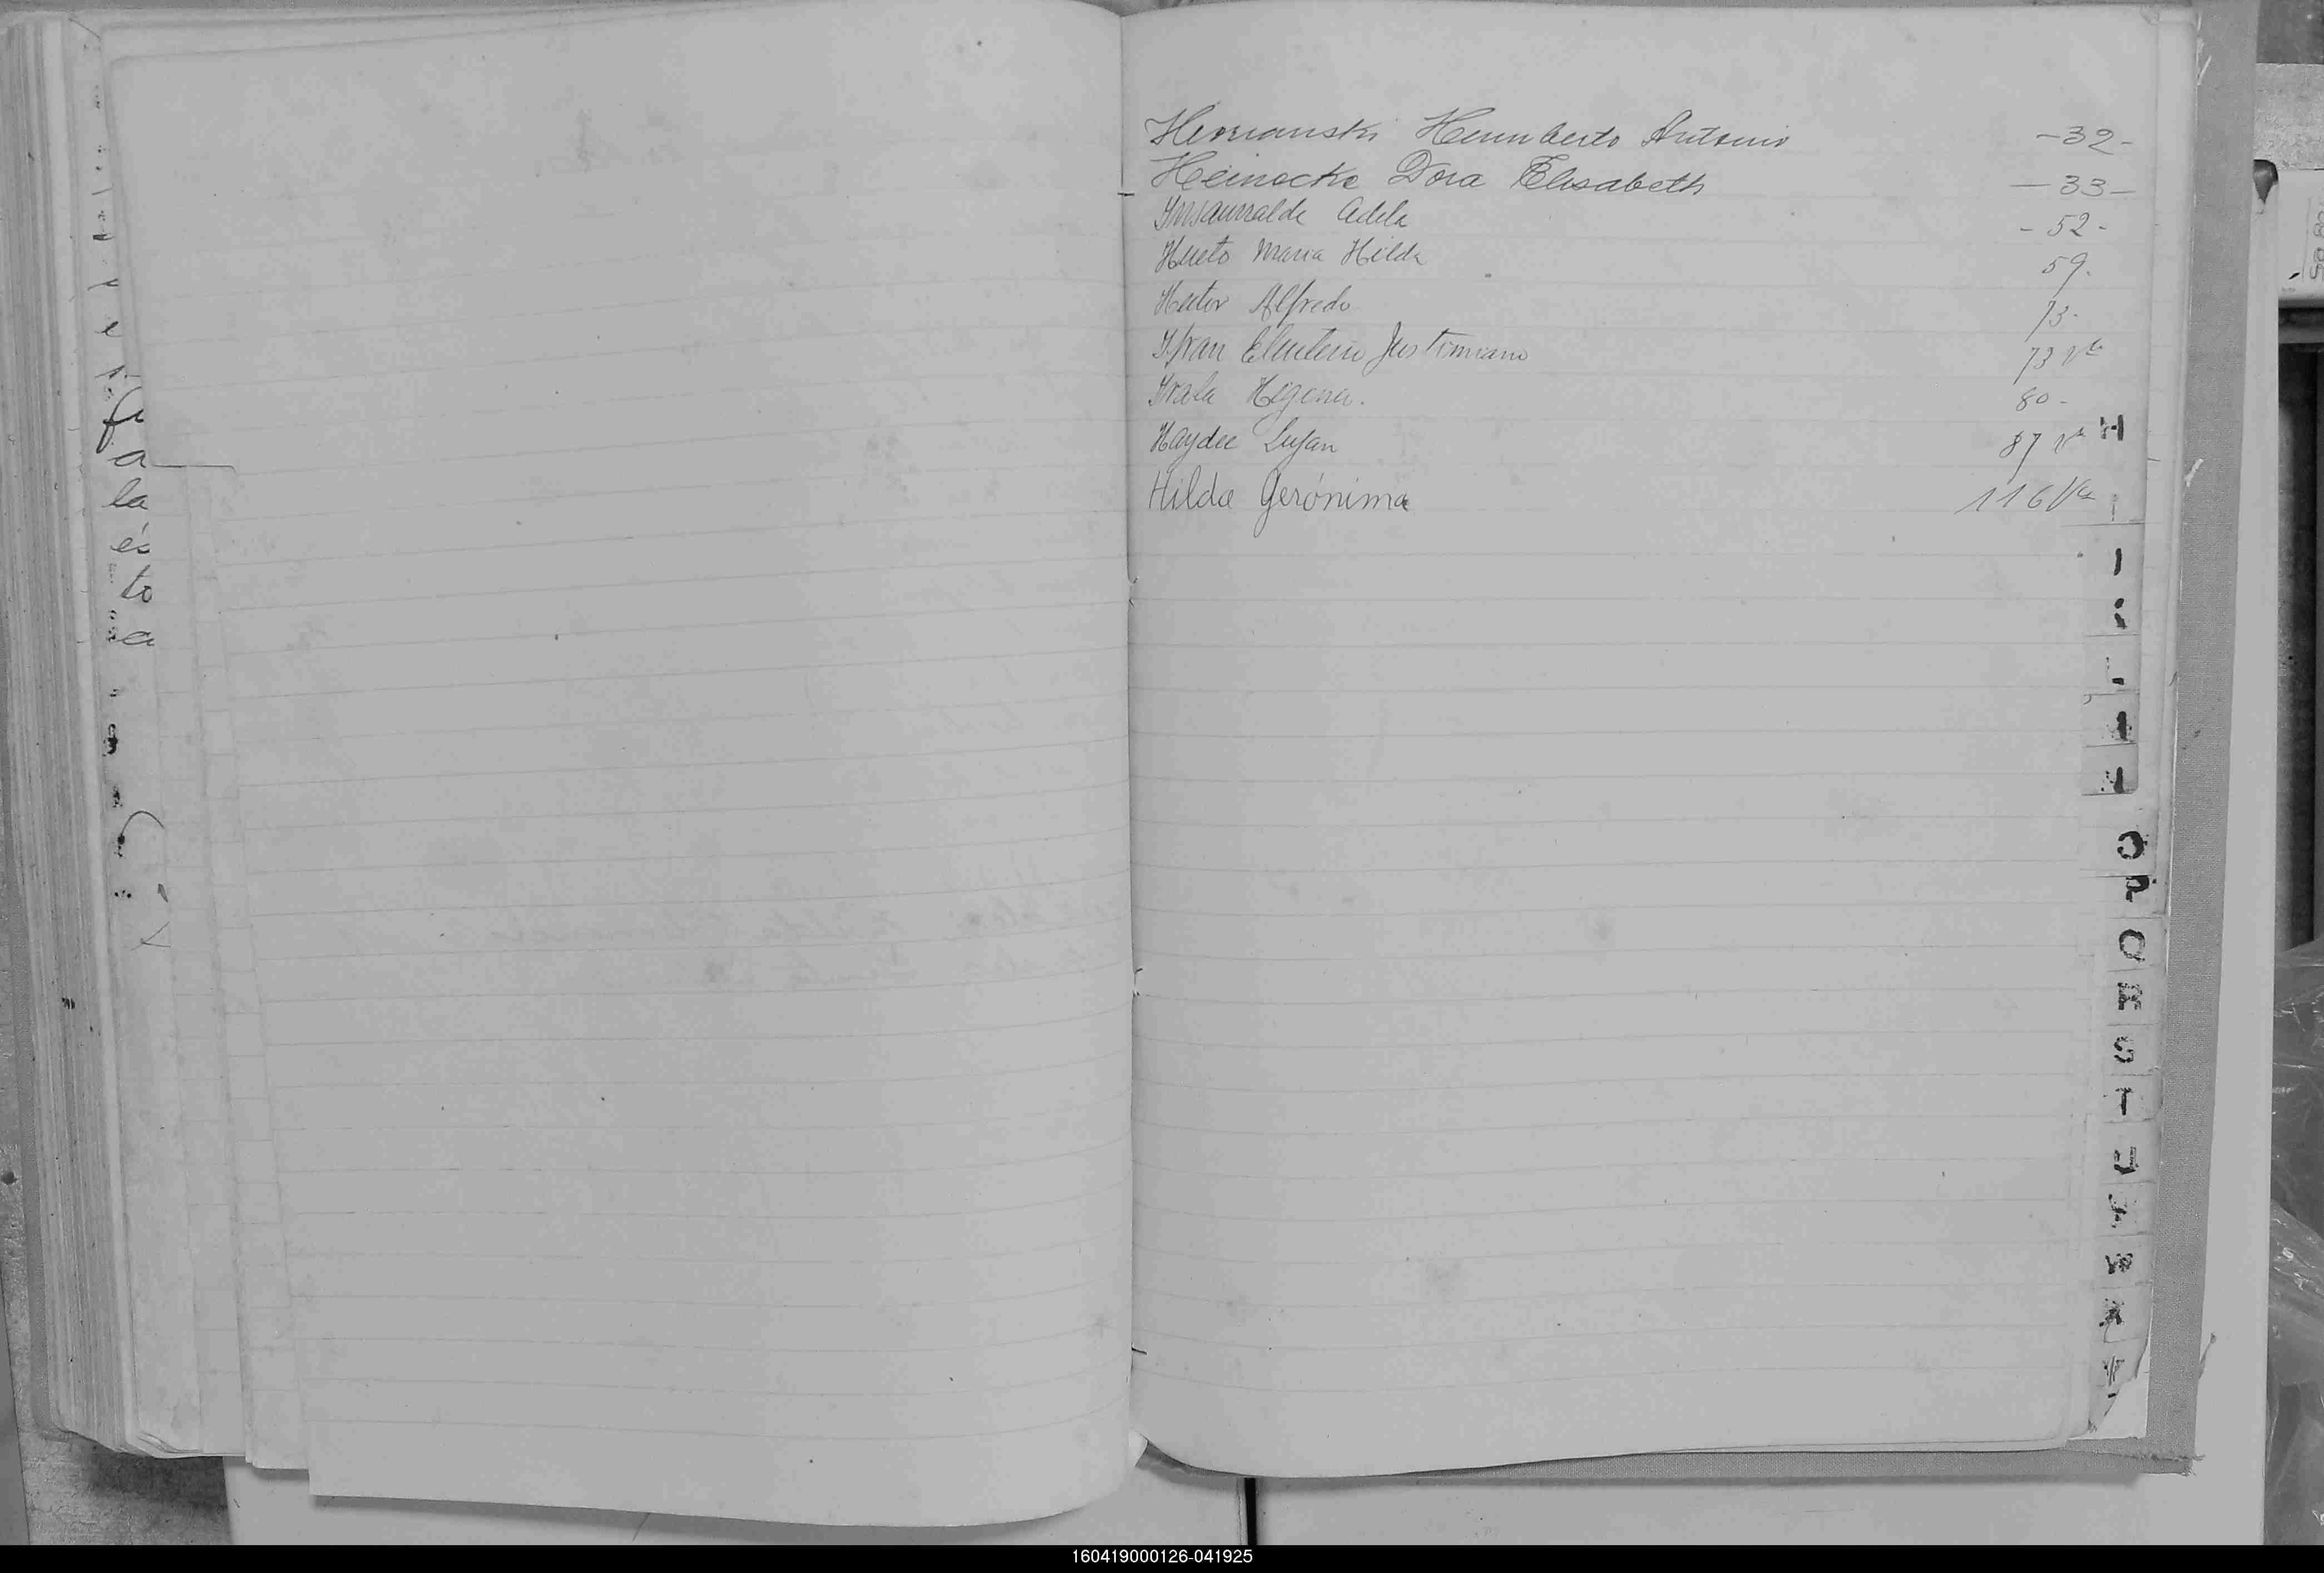 Humberto Antonio -32-
Heinecke Dora Elisabeth -33-
Insaurralde Adela -52-
Hueto Maria Hilda 59.
Hector Alfredo 73-
Ifran Eleuterio Justiniano 73 Vta
Irala Higena. 80-
Haydee Lujan 87 Vta
Hilda Gerónima 116 Vta
H
I
O
P
Q
R
S
T
a
la
és
to
a
160419000126-041925